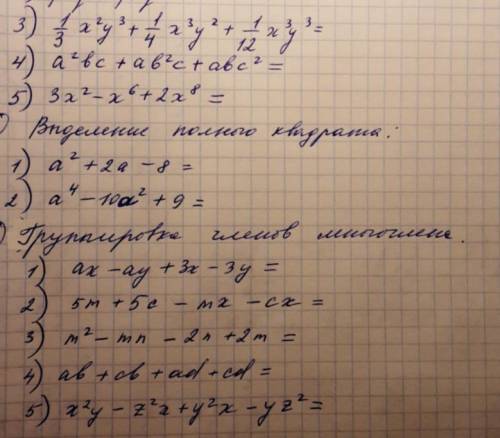 3) 1/3 x²y³ + 1/4 x³y² + 1/12 x³y³ =
4) a²bc + ab²c + abc² =
5) 3x² - x⁶ + 2x⁸ =
) Выделение полного квадрата:
1) a² + 2a - 8 =
2) a⁴ - 10a² + 9 =
) Группировка членов многочлена.
1) ax - ay + 3x - 3y =
2) 5m + 5c - mx - cx =
3) m² - mn - 2n + 2m =
4) ab + cb + ad + cd =
5) x²y - z²x + y²x - yz² =